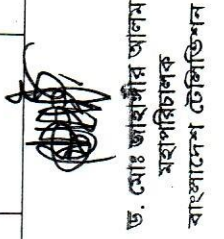 ড. মোঃ জাহাঙ্গীর আলম
মহাপরিচালক
বাংলাদেশ টেলিভিশন